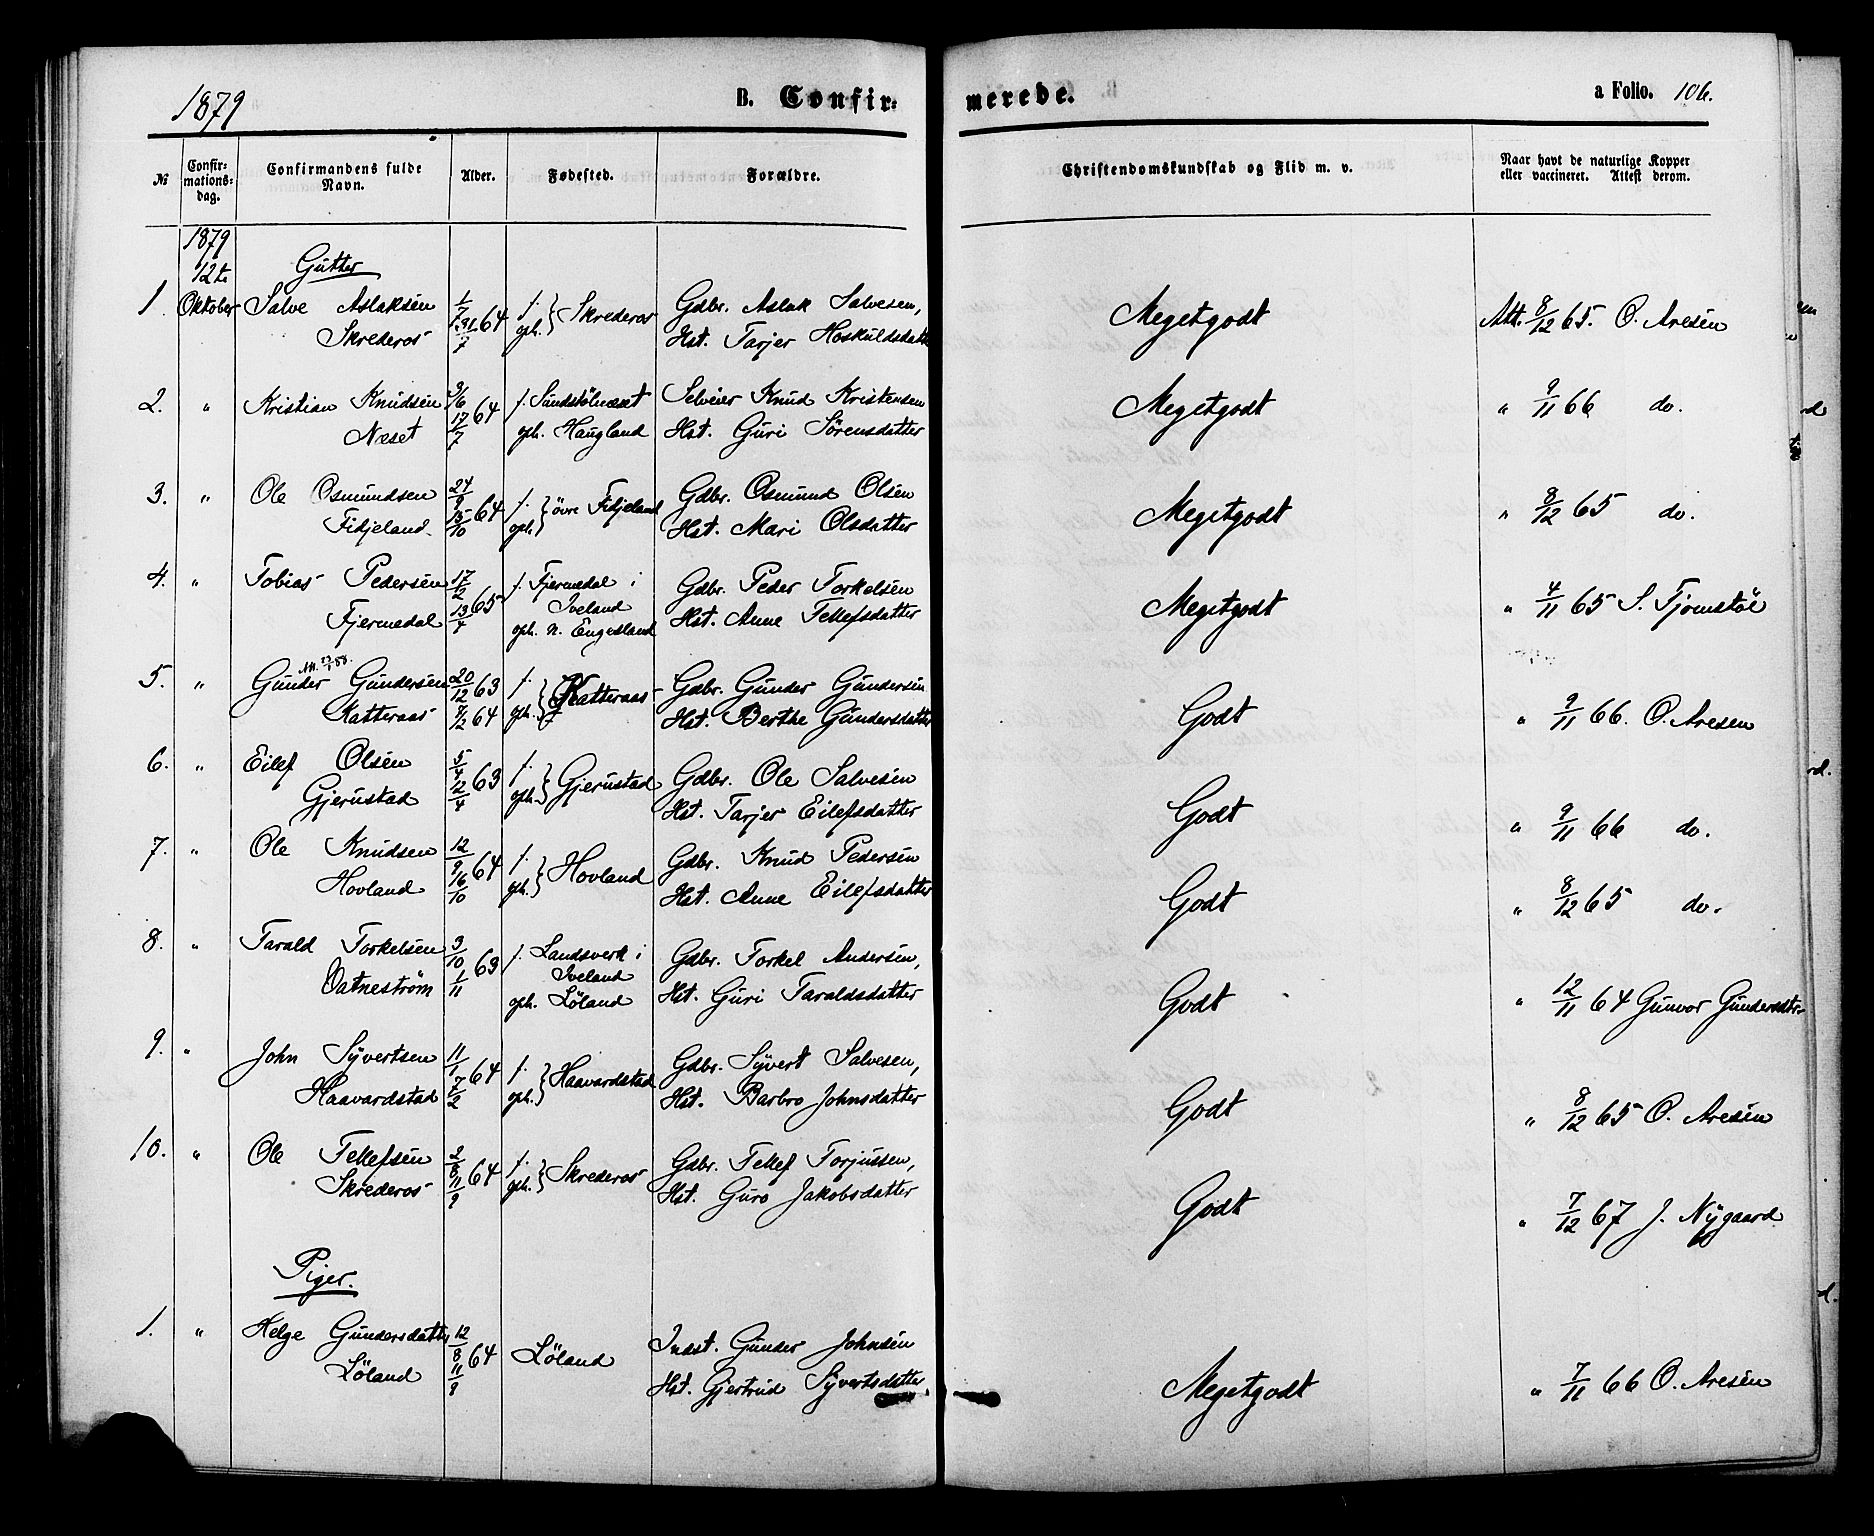 1879 B. Confir- merede. a Folio. 106.
№ Confir-mations-dag. Confirmandens fulde Navn. Alder. Fødested. Forældre. Christendomskundskab og Flid m. v. Naar havt de naturlige Kopper eller vaccineret. Attest derom.
1879
12te Gutter
1. Oktober Salve Aslaksen 1/7 64 f. Skrederos Gdbr. Aslak Salvesen, Megetgodt Att. 8/12 65. O. Aresen
Skrederos 31/7 oph. Hst. Tarjer Hoskuldsdatter
2. " Kristian Knudsen 3/6 64 f. Sundstölneset Selveier Knud Kristensen Megetgodt " 9/11 66 do.
Neset 17/7 oph. Haugland Hst. Guri Sörensdatter
3. " Ole Osmundsen 24/9 64 f. övre Fidjeland Gdbr. Osmund Olsen Megetgodt " 8/12 65 do.
Fidjeland. 15/10 oph. Hst. Mari Olsdatter
4. " Tobias Pedersen 17/2 65 f. Fjermedal i Gdbr. Peder Torkelsen Megetgodt " 4/11 65 S. Tjomstöl
Iveland
Fjermedal 13/4 oph. n. Engesland Hst. Anne Tellefsdatter
Att. 23/1 88.
5. " Gunder Gundersen 20/12 63 f. Katteraas Gdbr. Gunder Gundersen Godt " 9/11 66. O. Aresen
Katteraas 7/2 64 oph. Hst. Berthe Gundersdatter
6. " Eilef Olsen 5/4 63 f. Gjerustad Gdbr. Ole Salvesen Godt " 9/11 66 do.
Gjerustad 12/4 oph. Hst. Tarjer Eilefsdatter
7. " Ole Knudsen 12/9 64 f. Hovland Gdbr. Knud Pedersen Godt " 8/12 65 do.
Hovland 16/10 oph. Hst. Anne Eilefsdatter
8. " Tarald Torkelsen 3/10 63 f. Landsverk i Gdbr. Torkel Andersen, Godt " 12/11 64 Gunvor Gundersdtr.
Iveland
Vatneström 1/11 oph. Löland Hst. Guri Taraldsdatter
9. " John Syvertsen 11/1 64 f. Haavardstad Gdbr. Syvert Salvesen, Godt " 8/12 65 O. Aresen
Haavardstad 7/2 oph. Hst. Barbro Johnsdatter
10. " Ole Tellefsen 2/8 64 f. Skrederos Gdbr. Tellef Torjussen, Godt " 7/12 67 J. Nygaard
Skrederos 11/9 oph. Hst. Guro Jakobsdatter
Piger.
1. " Helge Gundersdatter 12/8 64 Löland Indst. Gunder Johnsen Megetgodt " 7/11 66 O. Aresen
Löland 11/9 Hst. Gjertrud Syvertsdatter